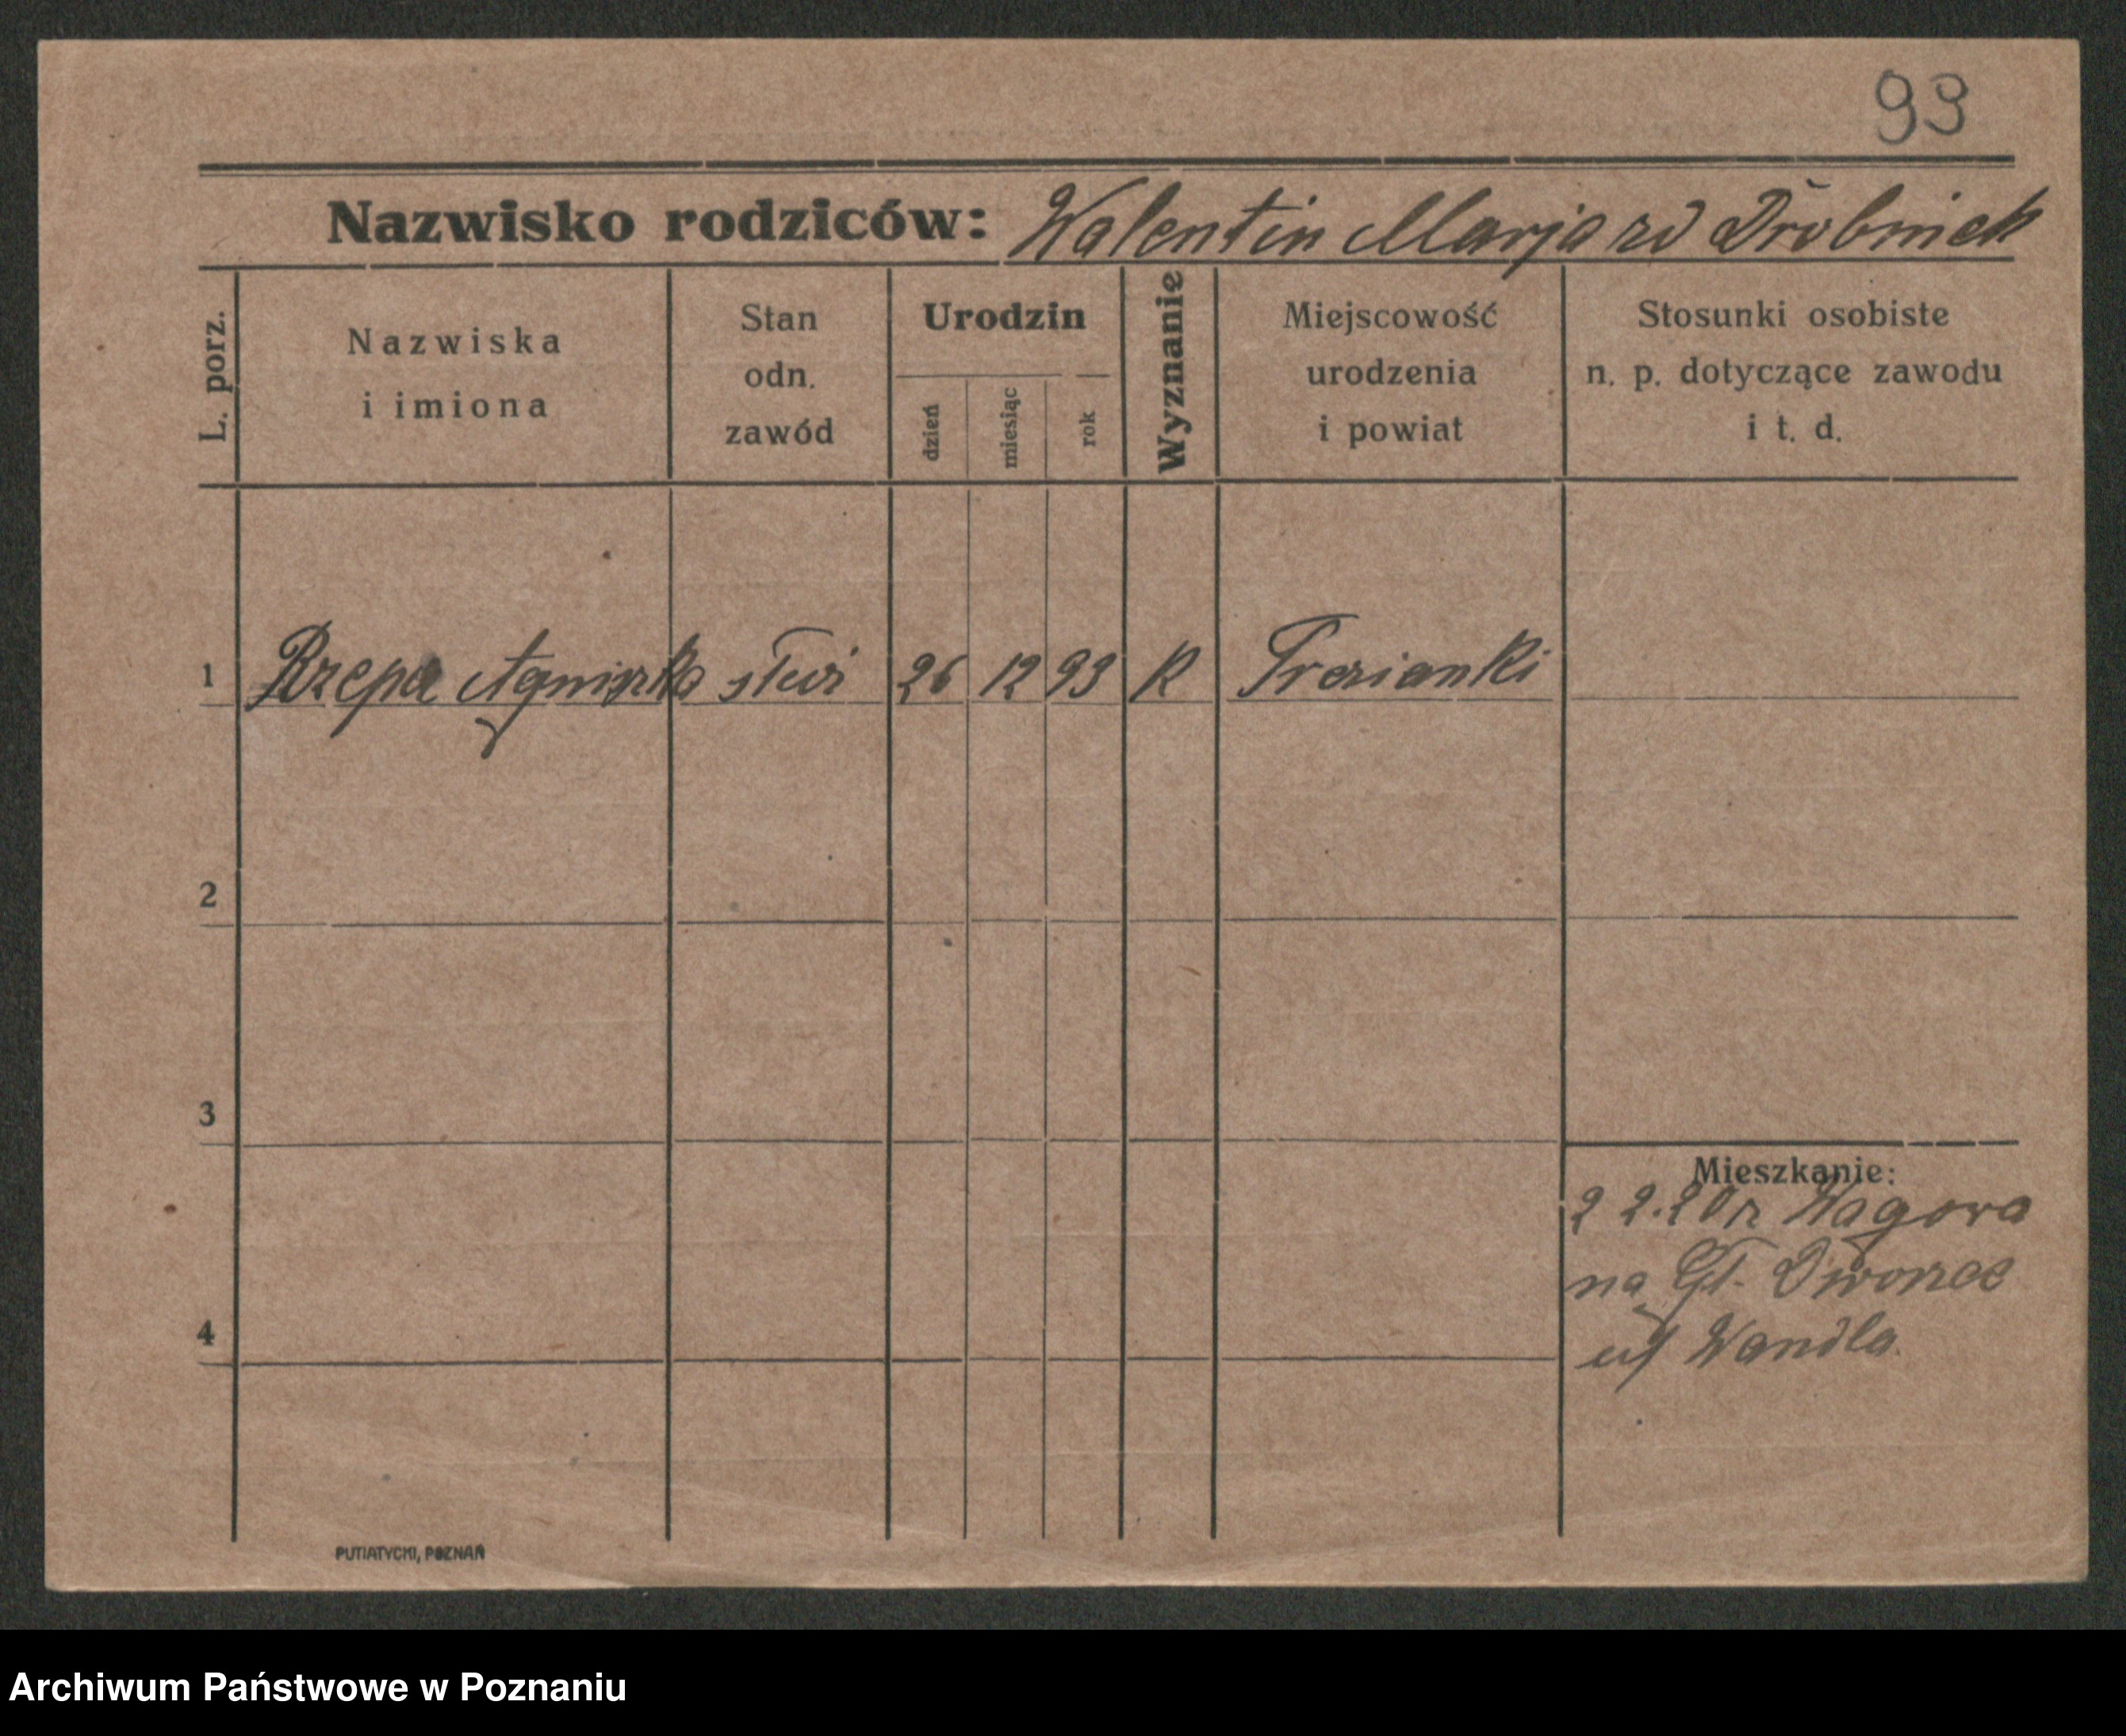 93
Nazwisko rodziców: Walentin Marja zd Drobniek
L. porz.
Nazwiska
i imiona
Stan
odn.
zawód
Urodzin
dzień
miesiąc
rok
Wyznanie
Miejscowość
urodzenia
i powiat
Stosunki osobiste
n. p. dotyczące zawodu
i t. d.
1 Rzepa Agniszka 26 12 93 K
2
3
4
Mieszkanie:
2 2.20r Wagowa
na Gł. Dworzec
Wandla.
PUTIATYCKI, POZNAŃ
Archiwum Państwowe w Poznaniu